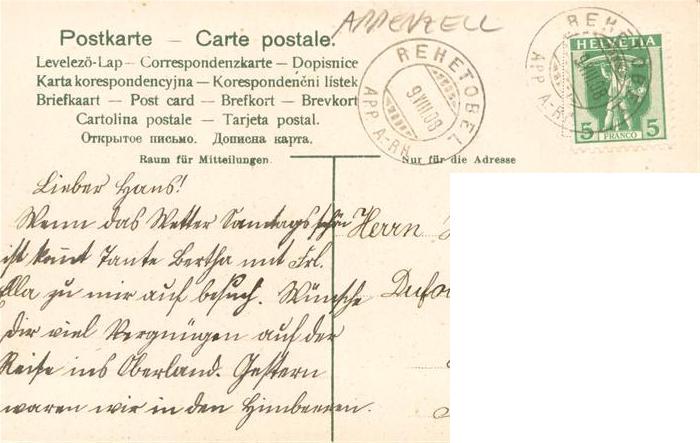 APPENZELL
Postkarte — Carte postale.
Levelező-Lap — Correspondenzkarte — Dopisnice
Karta korespondencyjna — Korespondenční lístek
Briefkaart — Post card — Brefkort — Brevkort
Cartolina postale — Tarjeta postal.
Открытое письмо. Дописна карта.
REHETOBEL
9 VIII 08
APP A.-RH
REHETOBEL
9 VIII 08
APP A.-RH
HELVETIA
5 FRANCO 5
Raum für Mitteilungen
Nur für die Adresse
Lieber Hans!
Wenn das Wetter Samtags schön
ist kommt Tante Bertha mit Frl.
Ella zu mir auf besuch. Wünsche
Dir viel Vergnügen auf der
Reise ins Oberland. Gestern
waren wir in den Himbeeren.
Herrn
Dufo